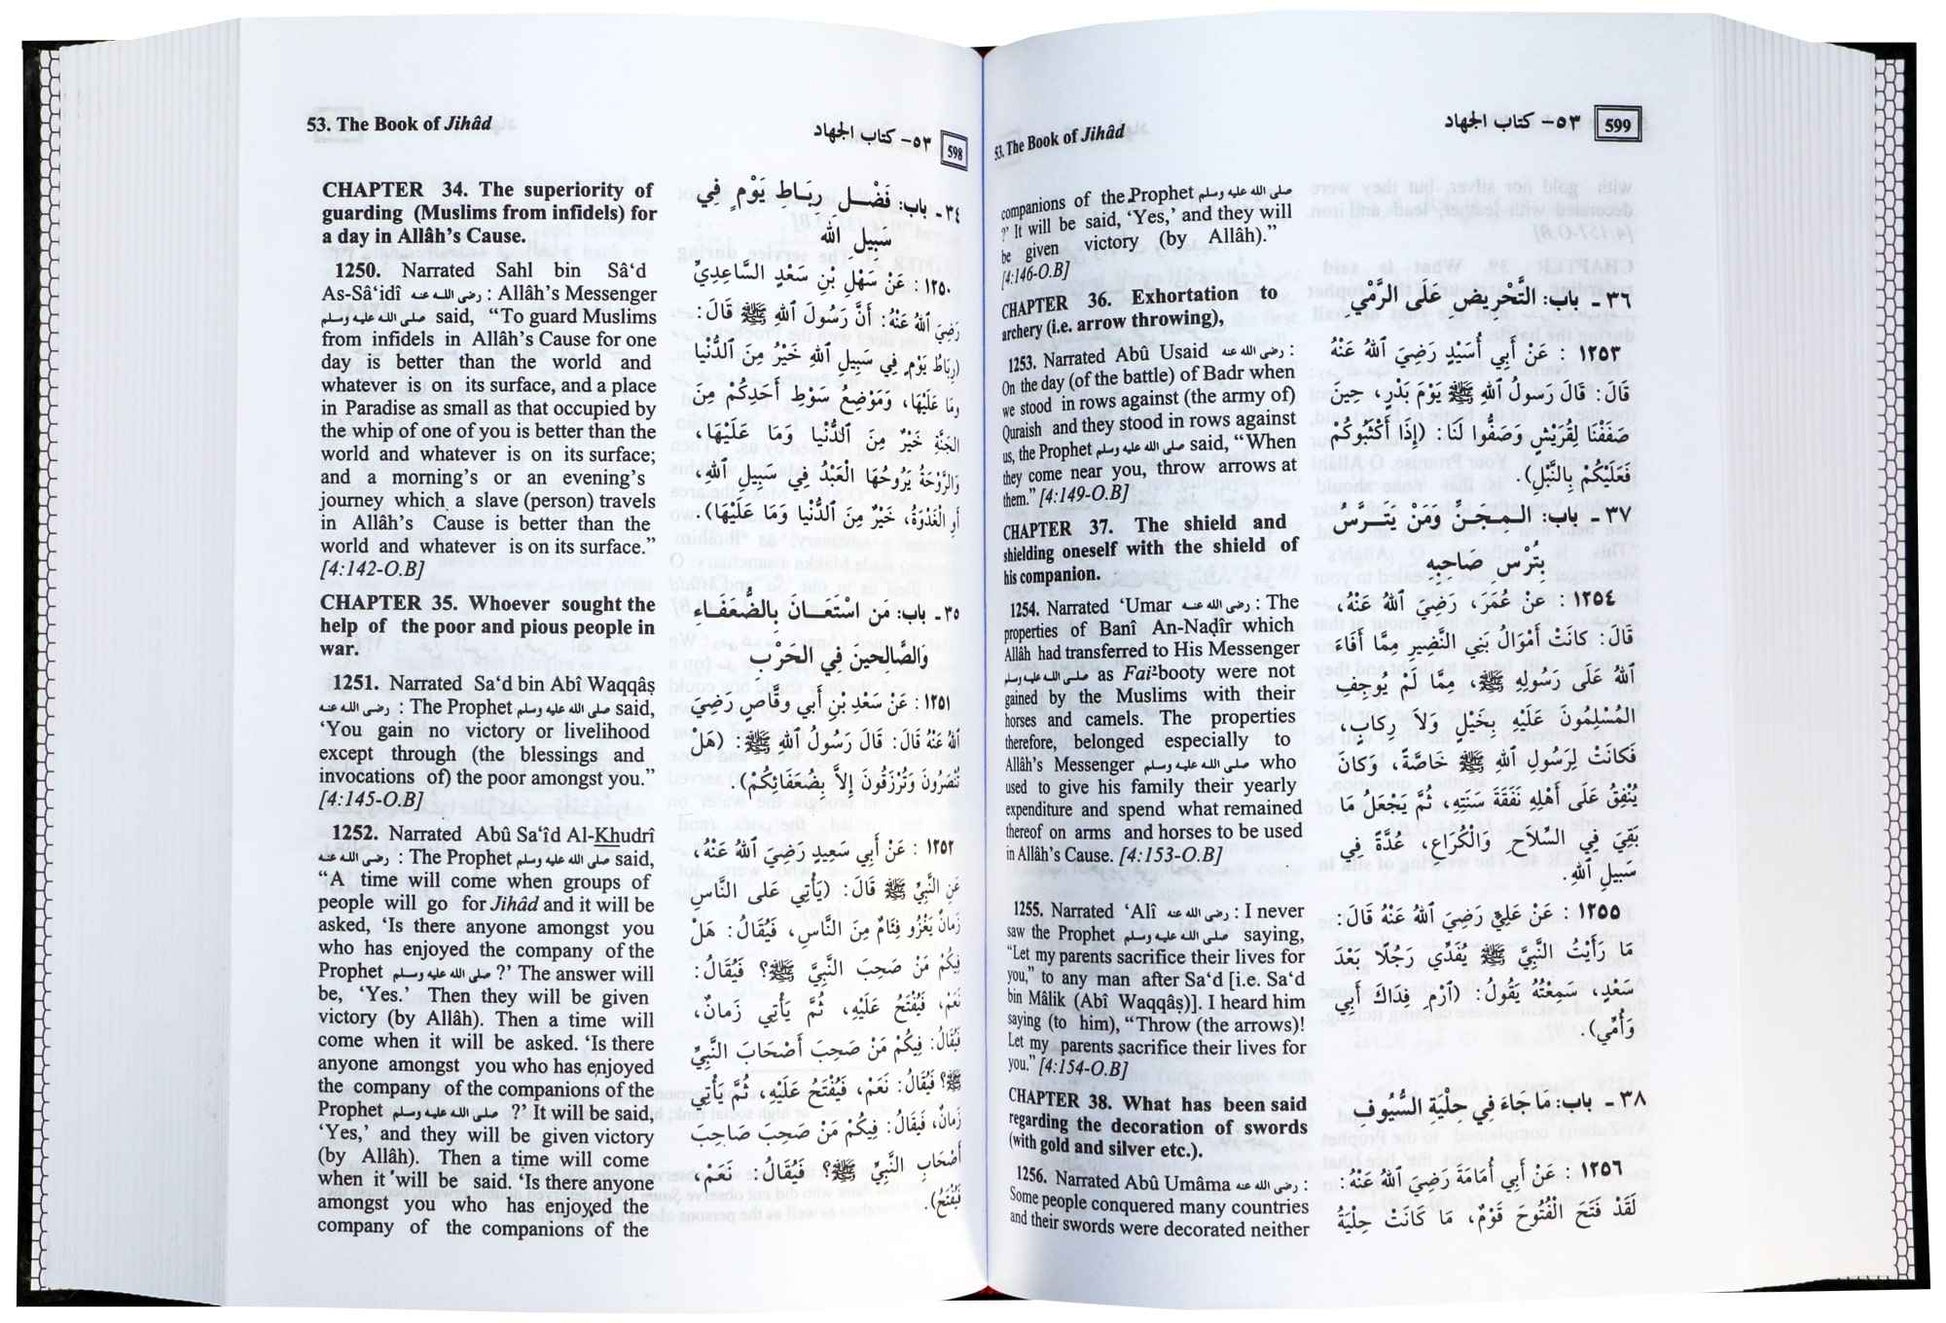 53. The Book of Jihâd
٥٣- كتاب الجهاد
598
CHAPTER 34. The superiority of
guarding (Muslims from infidels) for
a day in Allâh's Cause.
1250. Narrated Sahl bin Sâ'd
As-Sâ'idî رضى الله عنه : Allâh's Messenger
صلى الله عليه وسلم said, "To guard Muslims
from infidels in Allâh's Cause for one
day is better than the world and
whatever is on its surface, and a place
in Paradise as small as that occupied by
the whip of one of you is better than the
world and whatever is on its surface;
and a morning's or an evening's
journey which a slave (person) travels
in Allâh's Cause is better than the
world and whatever is on its surface."
[4:142-O.B]
CHAPTER 35. Whoever sought the
help of the poor and pious people in
war.
1251. Narrated Sa'd bin Abî Waqqâṣ
رضى الله عنه : The Prophet صلى الله عليه وسلم said,
'You gain no victory or livelihood
except through (the blessings and
invocations of) the poor amongst you."
[4:145-O.B]
1252. Narrated Abû Sa'îd Al-Khudrî
رضى الله عنه : The Prophet صلى الله عليه وسلم said,
"A time will come when groups of
people will go for Jihâd and it will be
asked, 'Is there anyone amongst you
who has enjoyed the company of the
Prophet صلى الله عليه وسلم ?' The answer will
be, 'Yes.' Then they will be given
victory (by Allâh). Then a time will
come when it will be asked. 'Is there
anyone amongst you who has enjoyed
the company of the companions of the
Prophet صلى الله عليه وسلم ?' It will be said,
'Yes,' and they will be given victory
(by Allâh). Then a time will come
when it will be said. 'Is there anyone
amongst you who has enjoyed the
company of the companions of the
٣٤- باب: فَضْل رِبَاطِ يَوْمٍ فِي
سَبِيل الله
١٢٥٠ : عَنْ سَهْلِ بْنِ سَعْدٍ السَّاعِدِيِّ
رَضِيَ اللهُ عَنْهُ: أَنَّ رَسُولَ اللهِ ﷺ قَالَ:
(رِبَاطُ يَوْمٍ فِي سَبِيلِ اللهِ خَيْرٌ مِنَ الدُّنْيَا
وَمَا عَلَيْهَا، وَمَوْضِعُ سَوْطِ أَحَدِكُمْ مِنَ
الجَنَّةِ خَيْرٌ مِنَ الدُّنْيَا وَمَا عَلَيْهَا،
وَالرَّوْحَةُ يَرُوحُهَا الْعَبْدُ فِي سَبِيلِ اللهِ،
أَوِ الْغَدْوَةُ، خَيْرٌ مِنَ الدُّنْيَا وَمَا عَلَيْهَا).
٣٥- باب: مَن اسْتَعَانَ بِالضُّعَفَاءِ
وَالصَّالِحِين فِي الحَرْبِ
١٢٥١ : عَنْ سَعْدِ بْنِ أَبي وقَّاصٍ رَضِيَ
اللهُ عَنْهُ قَالَ: قَالَ رَسُولُ اللهِ ﷺ: (هَلْ
تُنْصَرُونَ وَتُرْزَقُونَ إِلاَّ بِضُعَفَائِكُمْ).
١٢٥٢ : عَنْ أَبِي سَعِيدٍ رَضِيَ اللهُ عَنْهُ،
عَنِ النَّبِيِّ ﷺ قَالَ: (يَأْتِي عَلَى النَّاسِ
زَمانٌ يَغْزُو فِئَامٌ مِنَ النَّاسِ، فَيُقَالُ: هَلْ
فِيكُم مَنْ صَحِبَ النَّبِيَّ ﷺ؟ فَيُقَالُ:
نَعَمْ، فَيُفْتَحُ عَلَيْهِ، ثُمَّ يَأْتِي زَمانٌ،
فَيُقَالُ: فِيكُمْ مَنْ صَحِبَ أَصْحَابَ النَّبِيِّ
ﷺ؟ فَيُقَالُ: نَعَمْ، فَيُفْتَحُ عَلَيْهِ، ثُمَّ يَأْتِي
زَمانٌ، فَيُقَالُ: فِيكُمْ مَنْ صَحِبَ صَاحِبَ
أَصْحَابِ النَّبِيِّ ﷺ؟ فَيُقَالُ: نَعَمْ،
فَيُفْتَحُ).
53. The Book of Jihâd
٥٣- كتاب الجهاد
599
companions of the Prophet صلى الله عليه وسلم
?' It will be said, 'Yes,' and they will
be given victory (by Allâh)."
[4:146-O.B]
CHAPTER 36. Exhortation to
archery (i.e. arrow throwing),
1253. Narrated Abû Usaid رضى الله عنه :
On the day (of the battle) of Badr when
we stood in rows against (the army of)
Quraish and they stood in rows against
us, the Prophet صلى الله عليه وسلم said, "When
they come near you, throw arrows at
them." [4:149-O.B]
CHAPTER 37. The shield and
shielding oneself with the shield of
his companion.
1254. Narrated 'Umar رضى الله عنه : The
properties of Banî An-Naḍîr which
Allâh had transferred to His Messenger
صلى الله عليه وسلم as Fai²-booty were not
gained by the Muslims with their
horses and camels. The properties
therefore, belonged especially to
Allâh's Messenger صلى الله عليه وسلم who
used to give his family their yearly
expenditure and spend what remained
thereof on arms and horses to be used
in Allâh's Cause. [4:153-O.B]
1255. Narrated 'Alî رضى الله عنه : I never
saw the Prophet صلى الله عليه وسلم saying,
"Let my parents sacrifice their lives for
you," to any man after Sa'd [i.e. Sa'd
bin Mâlik (Abî Waqqâṣ)]. I heard him
saying (to him), "Throw (the arrows)!
Let my parents sacrifice their lives for
you." [4:154-O.B]
CHAPTER 38. What has been said
regarding the decoration of swords
(with gold and silver etc.).
1256. Narrated Abû Umâma رضى الله عنه :
Some people conquered many countries
and their swords were decorated neither
٣٦- باب: التَّحْرِيضِ عَلَى الرَّمْيِ
١٢٥٣ : عَنْ أَبِي أُسَيْدٍ رَضِيَ اللهُ عَنْهُ
قَالَ: قَالَ رَسُولُ اللهِ ﷺ يَوْمَ بَدْرٍ، حِينَ
صَفَفْنَا لِقُرَيْشٍ وَصَفُّوا لَنَا: (إِذَا أَكْثَبُوكُمْ
فَعَلَيْكُمْ بِالنَّبْلِ).
٣٧- باب: المِجَنِّ وَمَنْ يَتَرَّسُ
بِتُرْس صَاحِبِهِ
١٢٥٤ : عَنْ عُمَرَ، رَضِيَ اللهُ عَنْهُ،
قَالَ: كانَتْ أَمْوَالُ بَنِي النَّضِيرِ مِمَّا أَفَاءَ
اللهُ عَلَى رَسُولِهِ ﷺ، مِمَّا لَمْ يُوجِفِ
المُسْلِمُونَ عَلَيْهِ بِخَيْلٍ وَلاَ رِكابٍ،
فَكانَتْ لِرَسُولِ اللهِ ﷺ خاصَّةً، وَكانَ
يُنْفِقُ عَلَى أَهْلِهِ نَفَقَةَ سَنَتِهِ، ثُمَّ يَجْعَلُ مَا
بَقِيَ فِي السِّلاَحِ وَالْكُرَاعِ، عُدَّةً فِي
سَبِيلِ اللهِ.
١٢٥٥ : عَنْ عَلِيٍّ رَضِيَ اللهُ عَنْهُ قَالَ:
مَا رَأَيْتُ النَّبِيَّ ﷺ يُفَدِّي رَجُلًا بَعْدَ
سَعْدٍ، سَمِعْتُهُ يَقُولُ: (ارْمِ فِدَاكَ أَبِي
وَأُمِّي).
٣٨- باب: مَا جَاءَ فِي حِلْيَةِ السُّيُوفِ
١٢٥٦ : عَنْ أَبِي أُمَامَةَ رَضِيَ اللهُ عَنْهُ:
لَقَدْ فَتَحَ الْفُتُوحَ قَوْمٌ، مَا كَانَتْ حِلْيَةُ